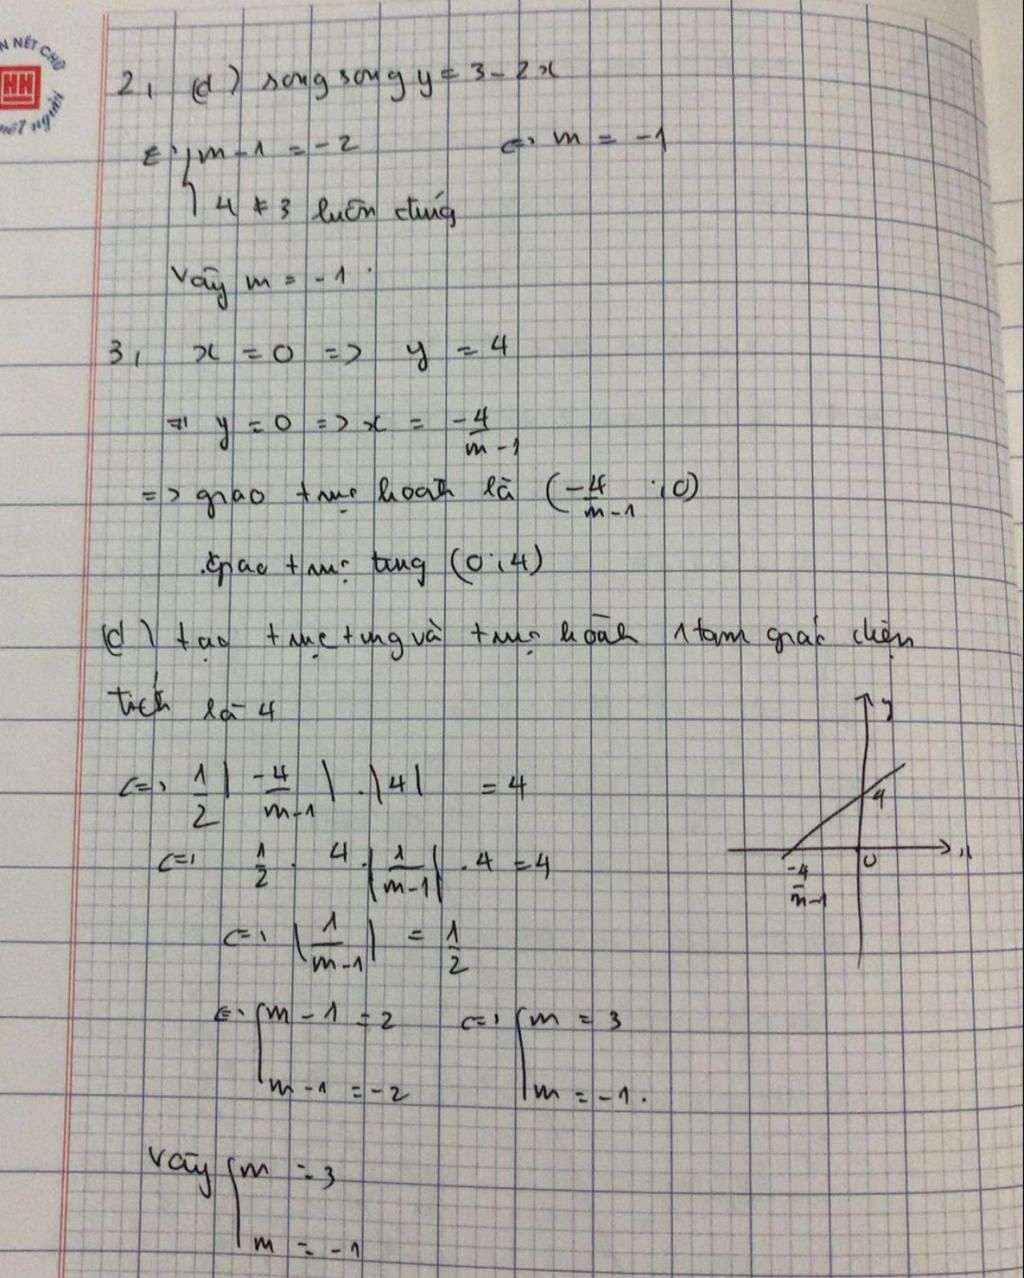 N NÉT CHỮ
HH
một người
2, (d) song song y = 3 - 2x
<=> { m - 1 = -2 <=> m = -1
4 ≠ 3 luôn đúng
Vậy m = -1.
3, x = 0 => y = 4
y = 0 => x = -4/(m-1)
=> giao trục hoành là (-4/(m-1) ; 0)
giao trục tung (0 ; 4)
(d) tạo trục tung và trục hoành 1 tam giác diện
tích là 4
<=> 1/2 |-4/(m-1)| . |4| = 4
<=> 1/2 . 4 . |1/(m-1)| . 4 = 4
<=> |1/(m-1)| = 1/2
<=> [ m - 1 = 2 <=> [ m = 3
m - 1 = -2 m = -1.
Vậy [ m = 3
m = -1
y
4
0
x
-4/(m-1)